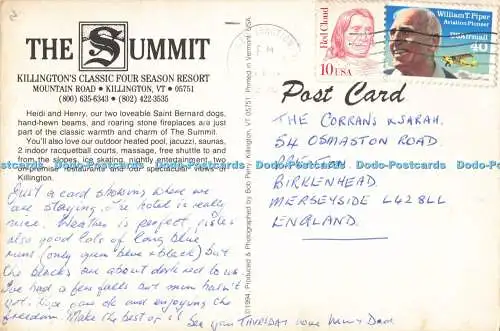 THE SUMMIT
KILLINGTON'S CLASSIC FOUR SEASON RESORT
MOUNTAIN ROAD • KILLINGTON, VT • 05751
(800) 635-6343 • (802) 422-3535
Heidi and Henry, our two loveable Saint Bernard dogs,
hand-hewn beams, and roaring stone fireplaces are just
part of the classic warmth and charm of The Summit.
You'll also love our outdoor heated pool, jacuzzi, saunas,
2 indoor racquetball courts, massage, free shuttle to and
from the slopes, ice skating, nightly entertainment, two
on-premise restaurants and our spectacular views of
Killington.
Just a card showing where we
are staying. The hotel is really
nice. Weather is perfect, pistes
also good lots of long blue
runs (only green blue + black) but
the blacks are about dark red to us.
I've had a few falls but mum hasn't
yet. Hope are ok and enjoying the
freedom. Make the best of it!
See you THURSDAY love Mum Dad
©1994 Produced & Photographed by Bob Perry, Killington, VT 05751 Printed in Vermont, USA
Red Cloud
10 USA
William T. Piper
Aviation Pioneer
USAirmail
40
PM
Post Card
THE CORRANS & SARAH.
54 OSMASTON ROAD
BIRKENHEAD
MERSEYSIDE L42 8LL
ENGLAND.
Dodo-Postcards Dodo-Postcards Dodo-Postcards Dodo-Postcards